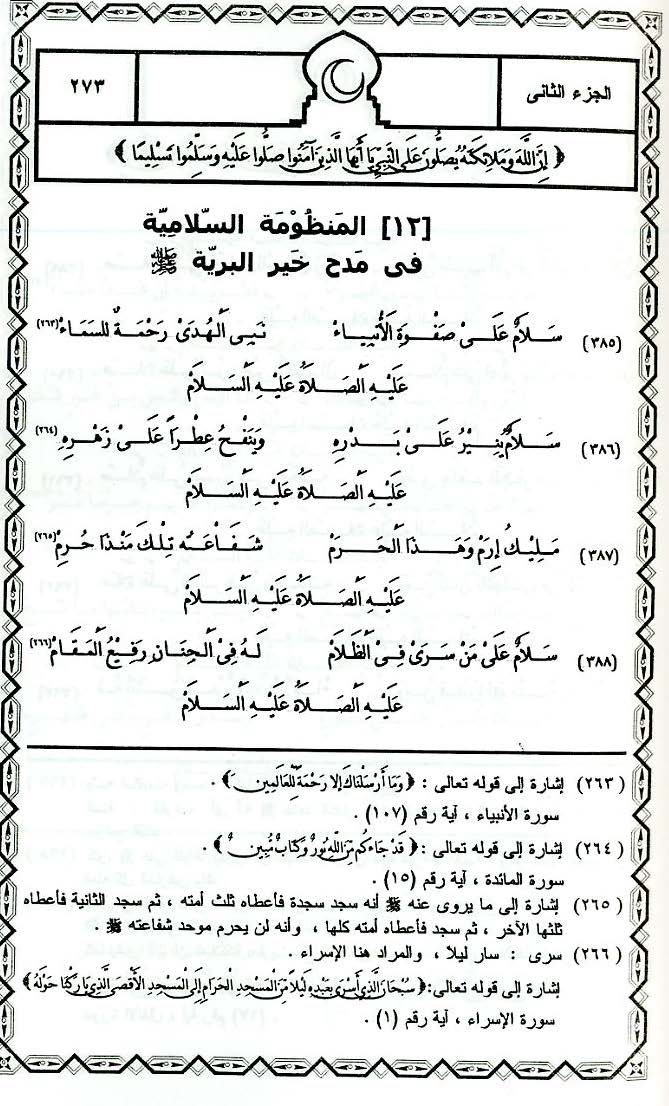 الجزء الثانى
٢٧٣
﴿ إِنَّ اللَّهَ وَمَلَائِكَتَهُ يُصَلُّونَ عَلَى النَّبِيِّ يَا أَيُّهَا الَّذِينَ آمَنُوا صَلُّوا عَلَيْهِ وَسَلِّمُوا تَسْلِيمًا ﴾
[١٢] المَنظُوْمَة السّلاميّة
فى مَدح خَير البريّة ﷺ
(٣٨٥) سَلَامٌ عَلَىْ صَفْوَةِ الْأَنْبِيَاءْ نَبِى الْهُدَىْ رَحْمَةٌ لِلسَمَاءْ(٢٦٣)
عَلَيْهِ الصَلَاةُ عَلَيْهِ السَلَامْ
(٣٨٦) سَلَامٌ يُنِيْرُ عَلَىْ بَدْرِهِ وَيَنْفَحُ عِطْرَاً عَلَىْ زَهْرِهِ(٢٦٤)
عَلَيْهِ الصَلَاةُ عَلَيْهِ السَلَامْ
(٣٨٧) مَلِيْكُ إِرَمْ وَهَذَا الْحَرَمْ شَفَاعَتُه تِلْكَ مَنْذَا حُرِمْ(٢٦٥)
عَلَيْهِ الصَلَاةُ عَلَيْهِ السَلَامْ
(٣٨٨) سَلَامٌ عَلَىْ مَنْ سَرَىْ فِى الْظَلَامْ لَهُ فِىْ الْجِنَانِ رَفِيْعُ الْمَقَامْ(٢٦٦)
عَلَيْهِ الصَلَاةُ عَلَيْهِ السَلَامْ
(٢٦٣) إشارة إلى قوله تعالى : ﴿ وَمَا أَرْسَلْنَاكَ إِلا رَحْمَةً لِلْعَالَمِينَ ﴾ .
سورة الأنبياء ، آية رقم (١٠٧) .
(٢٦٤) إشارة إلى قوله تعالى :﴿ قَدْ جَاءَكُم مِّنَ اللَّهِ نُورٌ وَكِتَابٌ مُّبِينٌ ﴾ .
سورة المائدة ، آية رقم (١٥) .
(٢٦٥) إشارة إلى ما يروى عنه ﷺ أنه سجد سجدة فأعطاه ثلث أمته ، ثم سجد الثانية فأعطاه
ثلثها الآخر ، ثم سجد فأعطاه أمته كلها ، وأنه لن يحرم موحد شفاعته ﷺ .
(٢٦٦) سرى : سار ليلا ، والمراد هنا الإسراء .
إشارة إلى قوله تعالى:﴿ سُبْحَانَ الَّذِي أَسْرَى بِعَبْدِهِ لَيْلاً مِّنَ الْمَسْجِدِ الْحَرَامِ إِلَى الْمَسْجِدِ الأَقْصَى الَّذِي بَارَكْنَا حَوْلَهُ ﴾
سورة الإسراء ، آية رقم (١) .